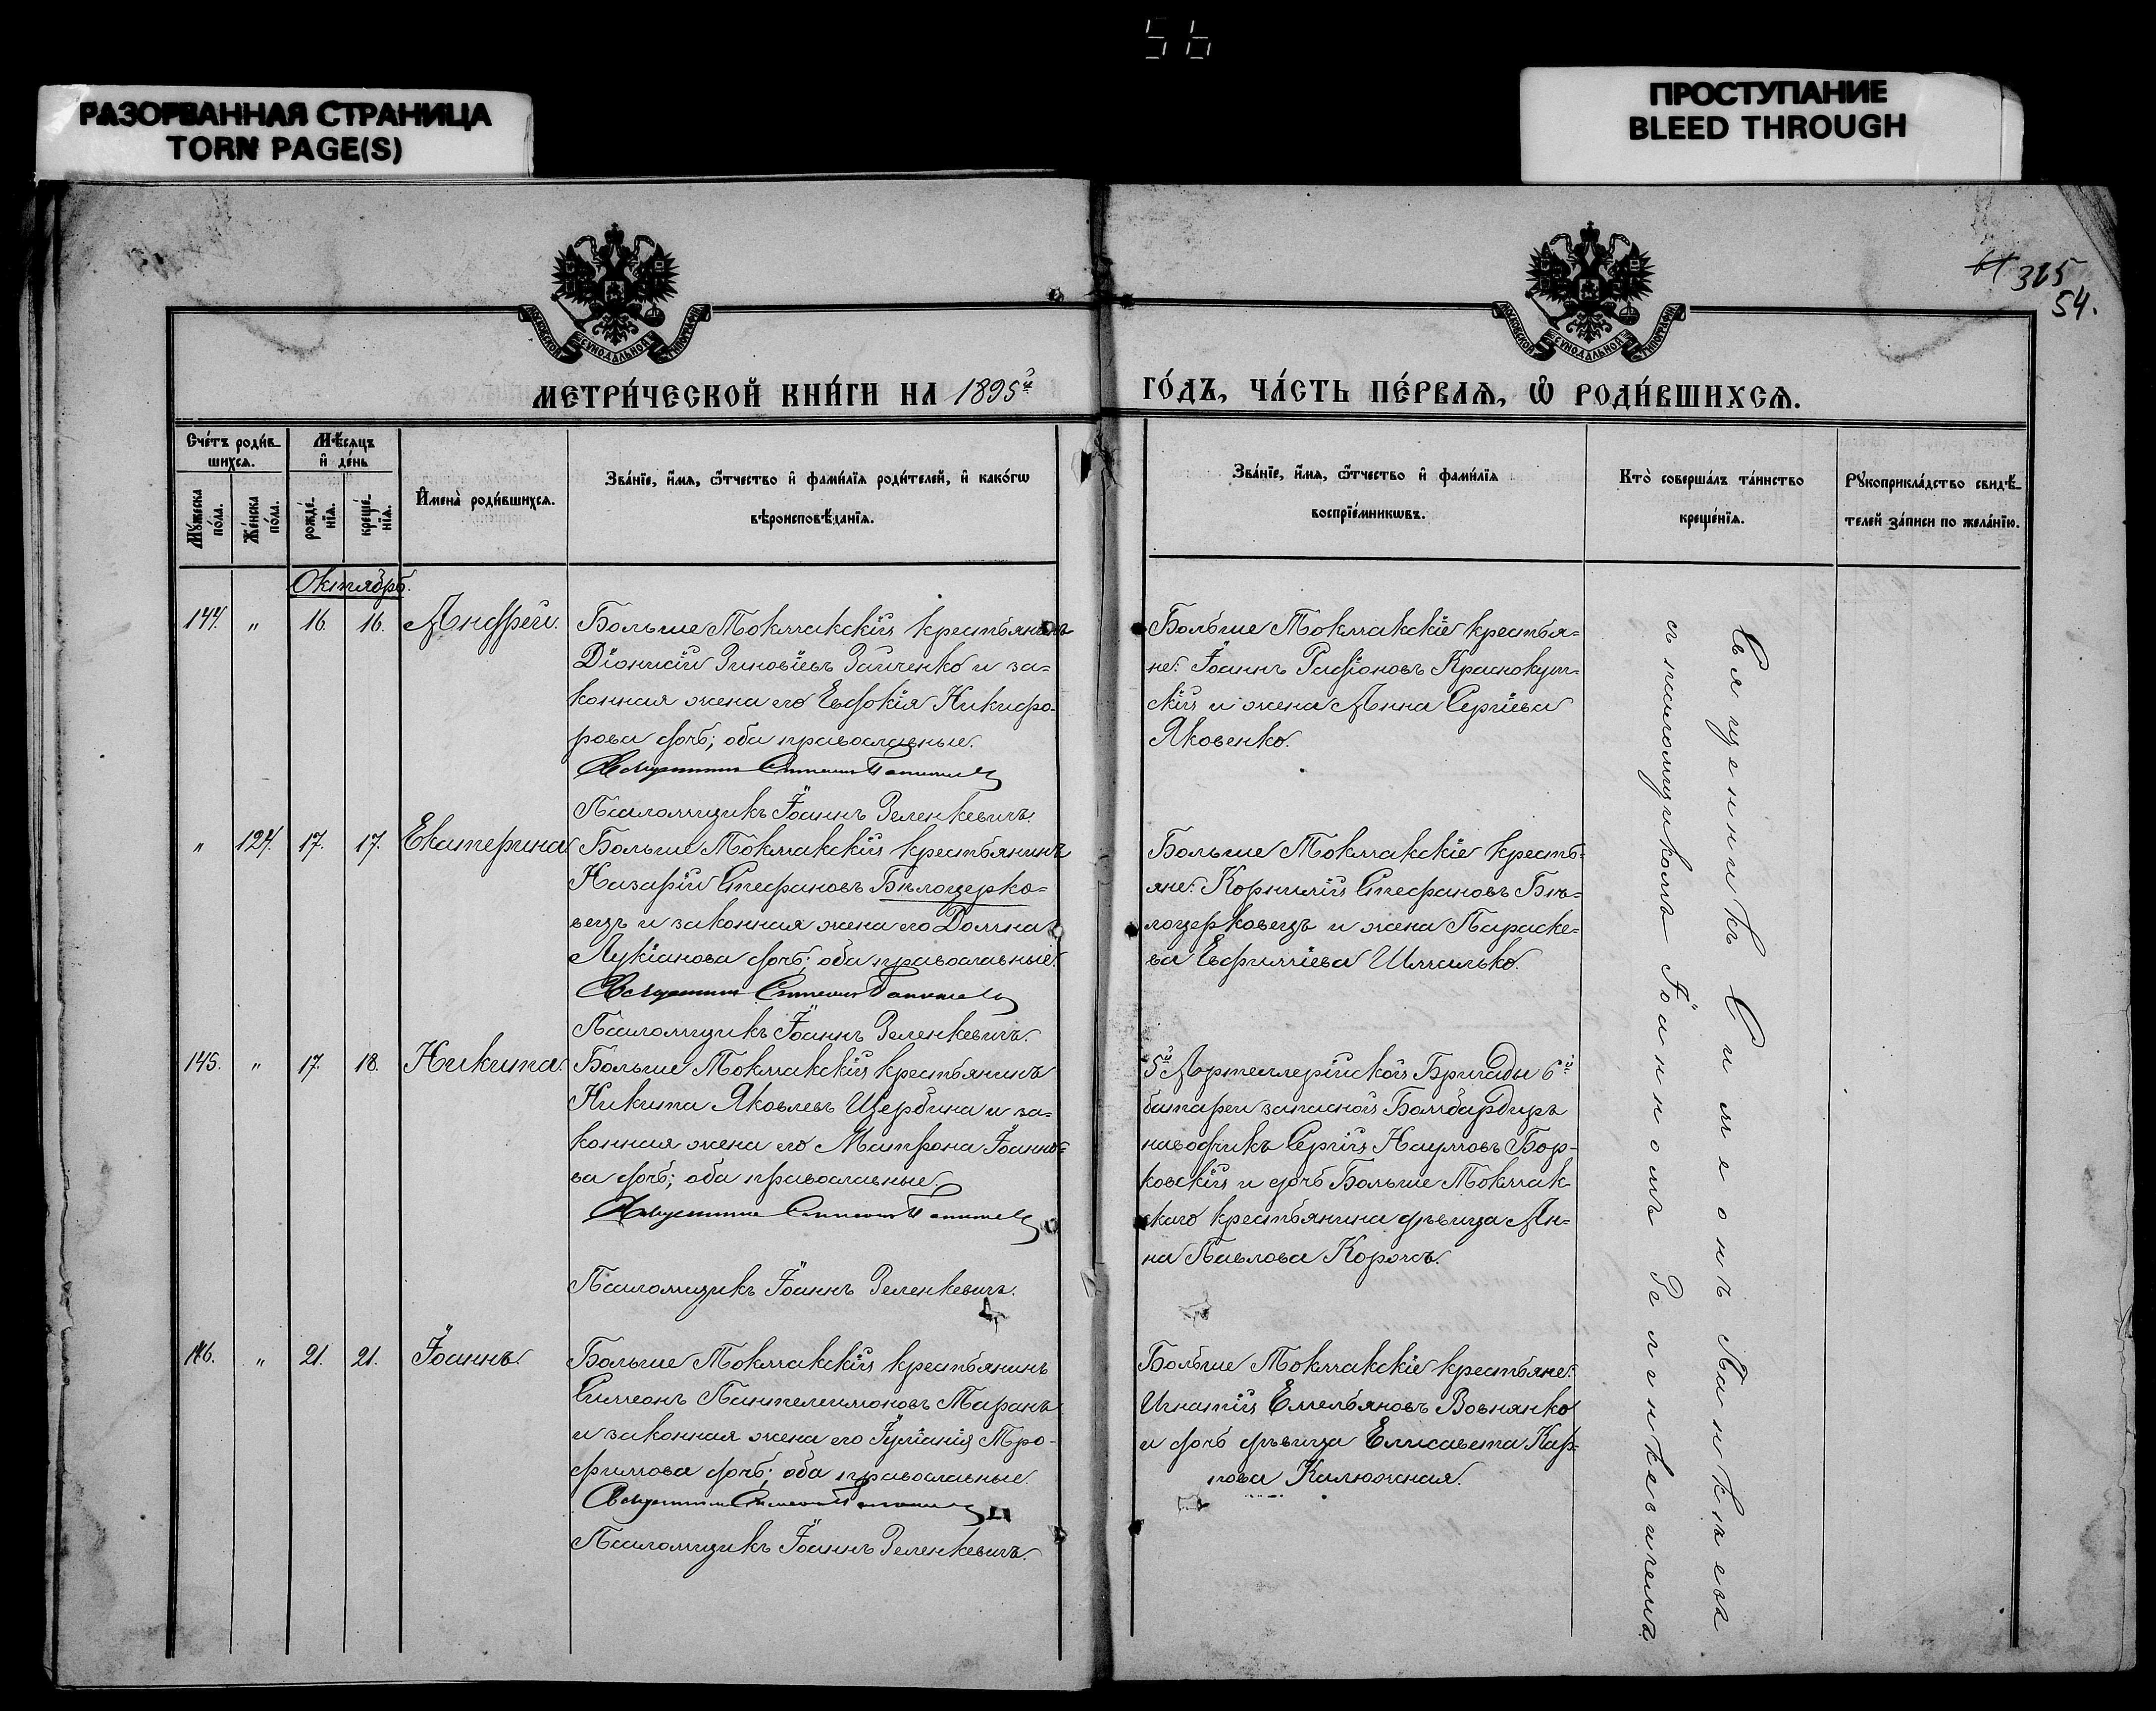 56
РАЗОРВАННАЯ СТРАНИЦА
TORN PAGE(S)
ПРОСТУПАНИЕ
BLEED THROUGH
315
54.
МОСКОВСКОЙ СѴНОДАЛЬНОЙ ТИПОГРАФІИ
МОСКОВСКОЙ СѴНОДАЛЬНОЙ ТИПОГРАФІИ
МЕТРИ́ЧЕСКОЙ КНИ́ГИ НА 1895й
ГО́ДЪ, ЧА́СТЬ ПЕ́РВАѦ, Ѡ҆ РОДИ́ВШИХСѦ.
Сче́тъ роди́в-
шихсѧ.
Мѣ́сяцъ
и҆ де́нь
Мꙋ́жеска
по́ла.
Же́нска
по́ла.
рожде́-
нїѧ.
креще́-
нїѧ.
И҆мена̀ роди́вшихсѧ.
Зва́нїе, и҆́мѧ, ѻ҆́тчество и҆ фами́лїѧ роди́телей, и҆ како́гѡ
вѣроисповѣ́данїѧ.
Зва́нїе, и҆́мѧ, ѻ҆́тчество и҆ фами́лїѧ
воспрїе́мникѡвъ.
Кто̀ соверша́лъ та́инство
креще́нїѧ.
Рꙋкоприкла́дство свидѣ́-
телей за́писи по жела́нїю.
Октябрь.
144. " 16. 16. Андрей.
Больше Токмакскій крестьянинъ
Діонисій Зиновіевъ Заиченко и за-
конная жена его Евдокія Никифо-
рова дочь; оба православные.
Псаломщикъ Іоаннъ Зеленкевичъ.
Больше Токмакскіе крестья-
не: Іоаннъ Родіоновъ Краснокут-
скій и жена Анна Сергіева
Яковенко.
" 124. 17. 17. Екатерина.
Больше Токмакскій крестьянинъ
Назарій Стефановъ Бѣлоцерко-
вецъ и законная жена его Домна
Лукіанова дочь; оба православные.
Псаломщикъ Іоаннъ Зеленкевичъ.
Больше Токмакскіе кресть-
яне: Корнилій Стефановъ Бѣ-
лоцерковецъ и жена Параске-
ва Евфиміева Шмалько.
145. " 17. 18. Никита.
Больше Токмакскій крестьянинъ
Никита Яковлевъ Щербина и за-
конная жена его Матрона Іоанно-
ва дочь; оба православные.
Псаломщикъ Іоаннъ Зеленкевичъ.
5й Артеллерійской Бригады 6й
батареи запасной Бомбардиръ
наводчикъ Сергій Наумовъ Бор-
ковскій и дочь Больше Токмак-
скаго крестьянина дѣвица Ан-
на Павлова Корожъ.
146. " 21. 21. Іоаннъ.
Больше Токмакскій крестьянинъ
Симеонъ Пантелеимоновъ Таранъ
и законная жена его Іуліанія Тро-
фимова дочь; оба православные.
Псаломщикъ Іоаннъ Зеленкевичъ.
Больше Токмакскіе крестьяне:
Игнатій Емельяновъ Вовнянко
и дочь дѣвица Елисавета Кар-
пова Калюжная.
Священникъ Симеонъ
съ псаломщикомъ Іоанномъ Зеленкевичемъ.